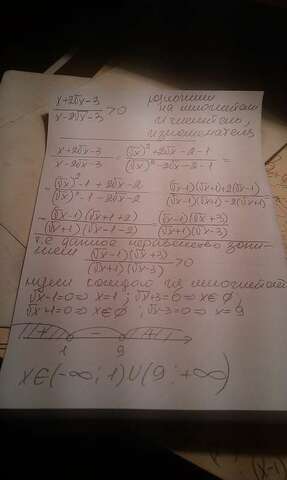 x+2√x-3 / x-2√x-3 >0
разложим
на множители
и числитель,
и знаменатель
x+2√x-3 / x-2√x-3 = (√x)²+2√x-2-1 / (√x)²-2√x-2-1 =
= (√x)²-1+2√x-2 / (√x)²-1-2√x-2
(√x-1)(√x+1)+2(√x-1) / (√x-1)(√x+1)-2(√x+1)
= (√x-1)(√x+1+2) / (√x+1)(√x-1-2)
(√x-1)(√x+3) / (√x+1)(√x-3)
т.е данное неравенство
(√x-1)(√x+3) / (√x+1)(√x-3) >0
нули каждой из множителей
√x-1=0⇒ x=1 ; √x+3=0⇒x∈∅,
√x+1=0⇒x∈∅ ; √x-3=0⇒ x=9
+ - +
1 9
x∈(-∞;1)U(9;+∞)